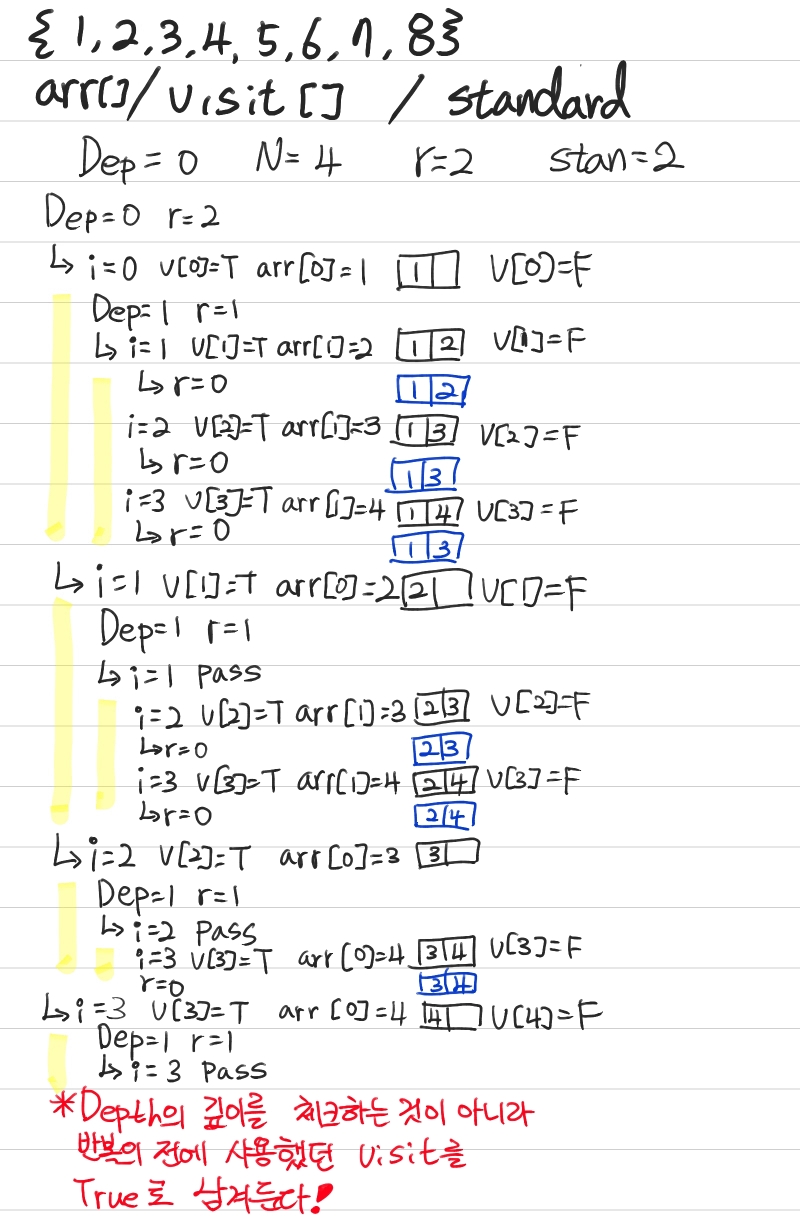 {1,2,3,4,5,6,7,8}
arr[]/visit[] / standard
Dep=0 N=4 r=2 stan=2
Dep=0 r=2
↳ i=0 V[0]=T arr[0]=1 1 V[0]=F
Dep=1 r=1
↳ i=1 V[1]=T arr[1]=2 1 2 V[1]=F
↳ r=0 1 2
i=2 V[2]=T arr[1]=3 1 3 V[2]=F
↳ r=0 1 3
i=3 V[3]=T arr[1]=4 1 4 V[3]=F
↳ r=0 1 3
↳ i=1 V[1]=T arr[0]=2 2 V[1]=F
Dep=1 r=1
↳ i=1 pass
i=2 V[2]=T arr[1]=3 2 3 V[2]=F
↳ r=0 2 3
i=3 V[3]=T arr[1]=4 2 4 V[3]=F
↳ r=0 2 4
↳ i=2 V[2]=T arr[0]=3 3
Dep=1 r=1
↳ i=2 pass
i=3 V[3]=T arr[0]=4 3 4 V[3]=F
r=0 3 4
↳ i=3 V[3]=T arr[0]=4 4 V[4]=F
Dep=1 r=1
↳ i=3 pass
*Depth의 깊이를 체크하는 것이 아니라
반복의 전에 사용했던 visit를
True로 남겨둔다!